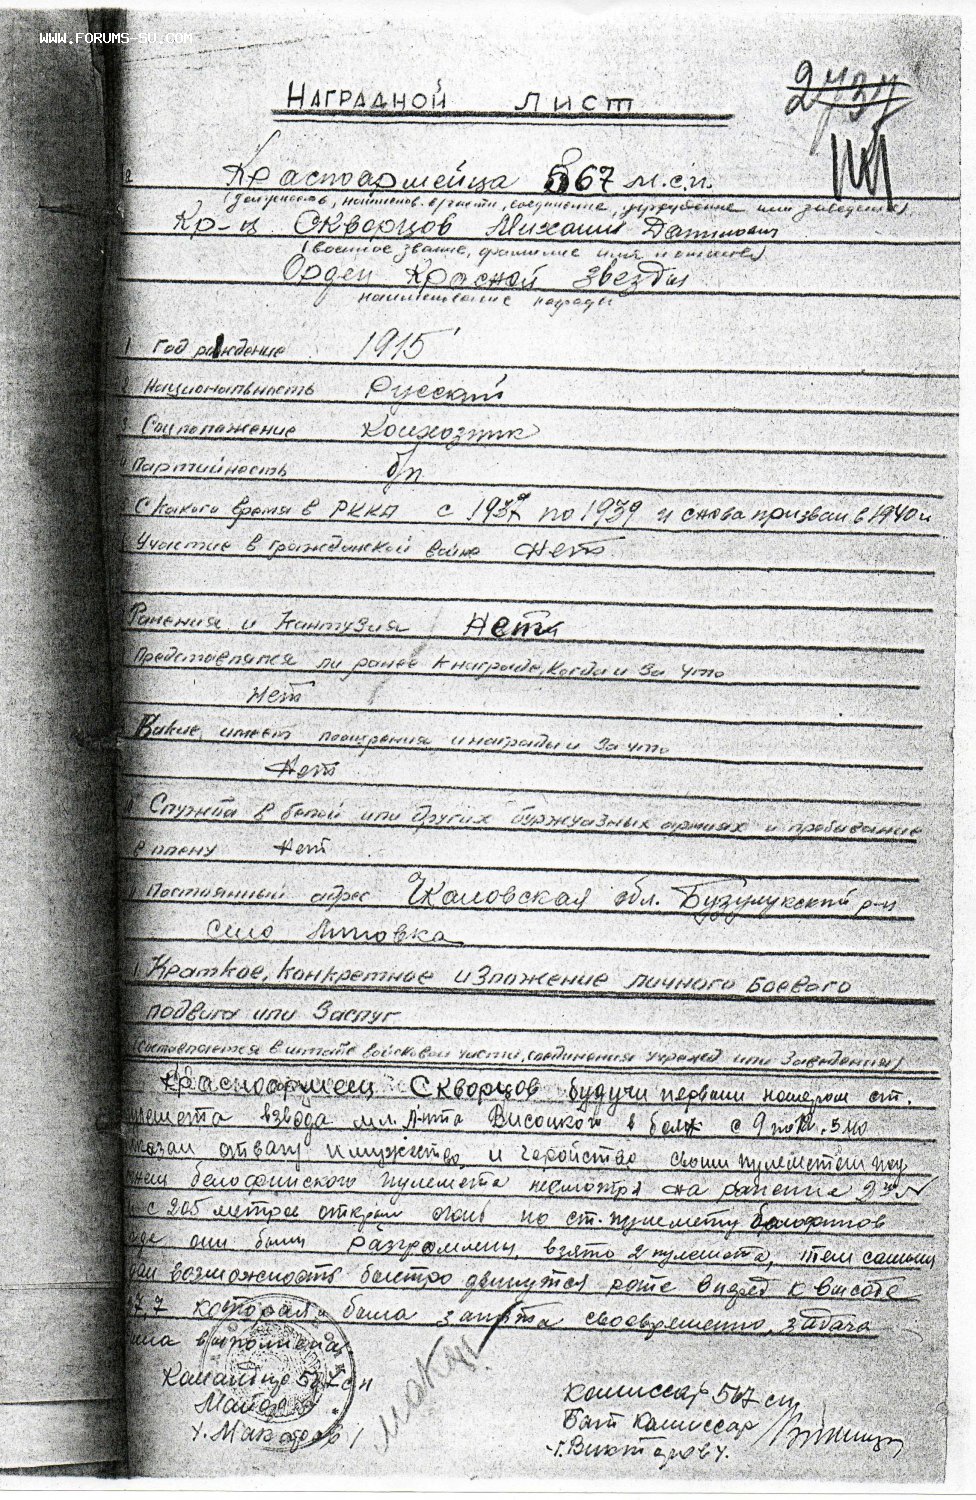 WWW.FORUMS-SU.COM
2737
НАГРАДНОЙ ЛИСТ
Красноармейца 567 м.с.п.
Кр-ц Скворцов Михаил Данилович
(военное звание, фамилие имя и отчество)
Орден Красной Звезды
наименование награды
Год рождение 1915
Национальность Русский
Соцположение Колхозник
Партийность б/п
С какого время в РККА с 1937 по 1939 и снова призван в 1940
Участие в гражданской войне Нет
Ранения и Кантузия Нет
Представлялся ли ранее к награде, когда и за что
Нет
Какие имеет поощрения и награды и за что
Нет
Служба в белой или других буржуазных армиях и пребывание
в плену Нет
Постоянный адрес Чкаловская обл. Бузулукский р-н
село Липовка
Краткое, конкретное изложение личного боевого
подвига или заслуг
(составляется в штабе войсковой части, соединения учрежд или заведения)
Красноармеец Скворцов будучи первым номером ст.
взвода мл. л-нта Висоцкого в боях с 9 по
отвагу и мужество и геройство своим пулеметом под
белофинского пулемета несмотря на ранение 2го №
с 205 метров открыл огонь по ст. пулемету белофинов
они были разгромлены, взято 2 пулемета, тем самым
возможность быстро двинутся роте вперед к высоте
7,7 которая и была занята своевременно, задача
выполнена
Командир 567 сп
Майор
/Макаров/
комиссар 567 сп
Бат комиссар
/Викторов/